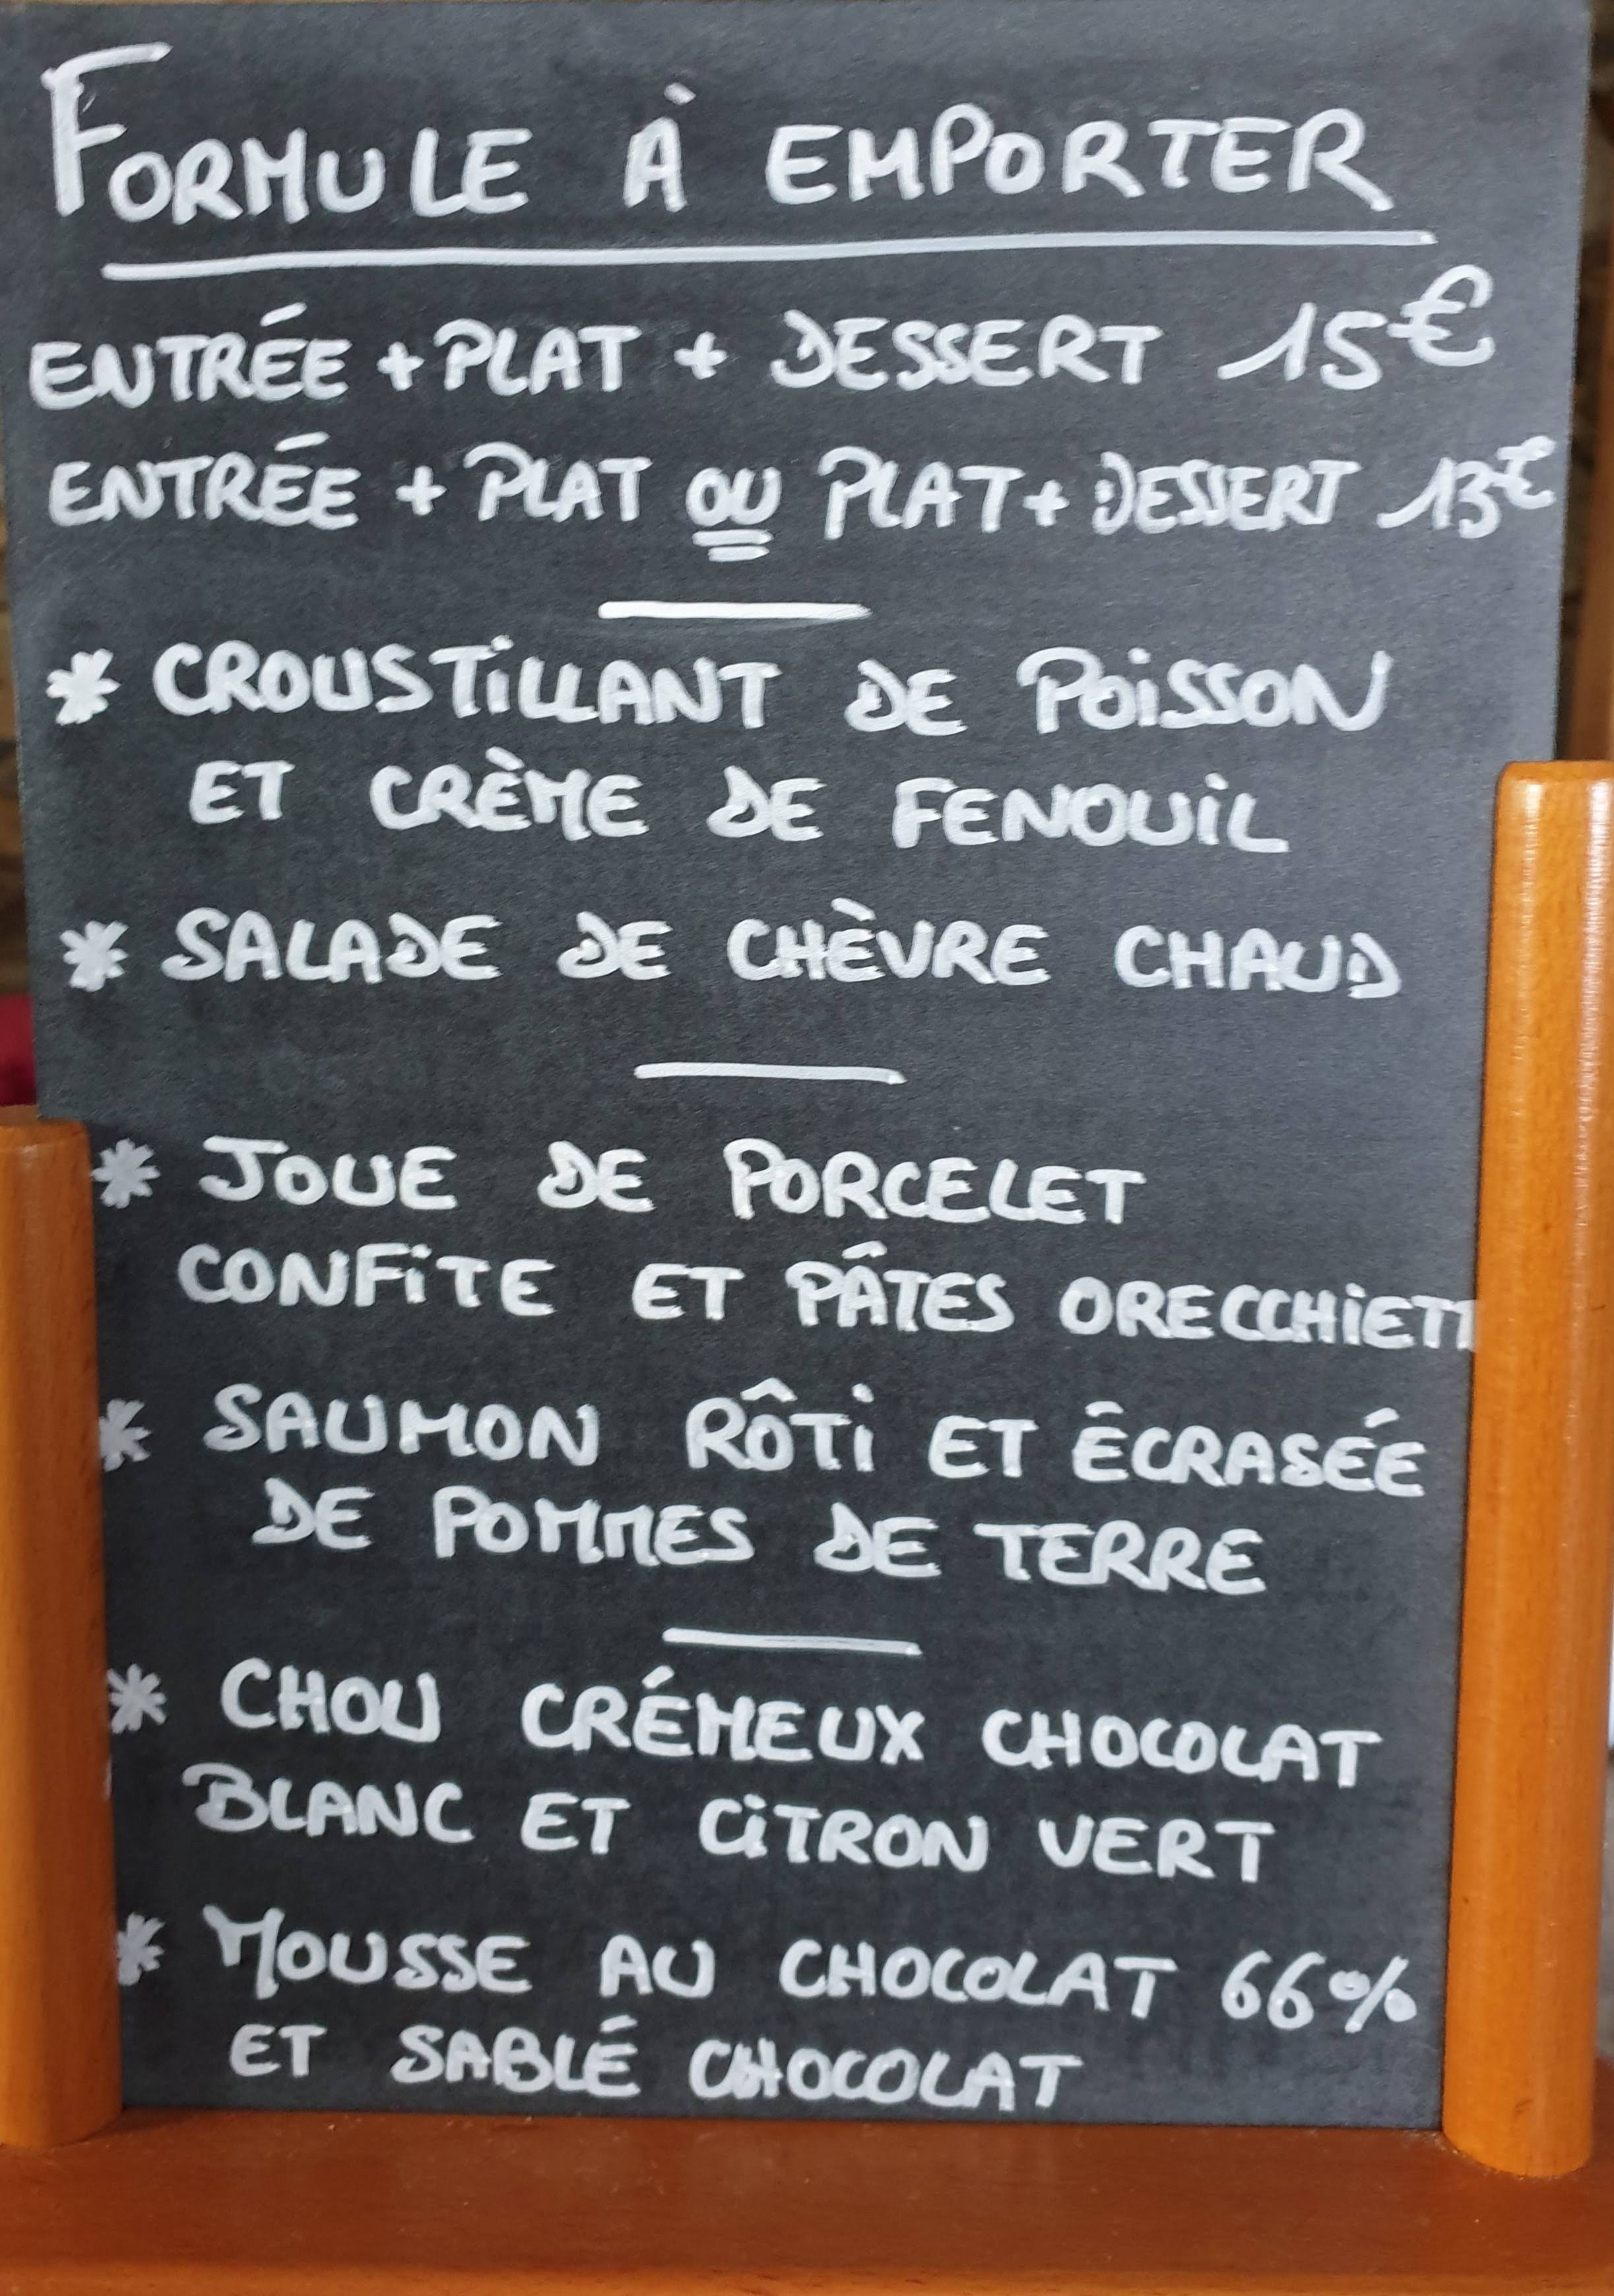 FORMULE À EMPORTER
ENTRÉE + PLAT + DESSERT 15€
ENTRÉE + PLAT OU PLAT + DESSERT 13€
* CROUSTILLANT DE POISSON
ET CRÈME DE FENOUIL
* SALADE DE CHÈVRE CHAUD
* JOUE DE PORCELET
CONFITE ET PÂTES ORECCHIETT
* SAUMON RÔTI ET ÉCRASÉE
DE POMMES DE TERRE
* CHOU CRÉMEUX CHOCOLAT
BLANC ET CITRON VERT
* MOUSSE AU CHOCOLAT 66%
ET SABLÉ CHOCOLAT